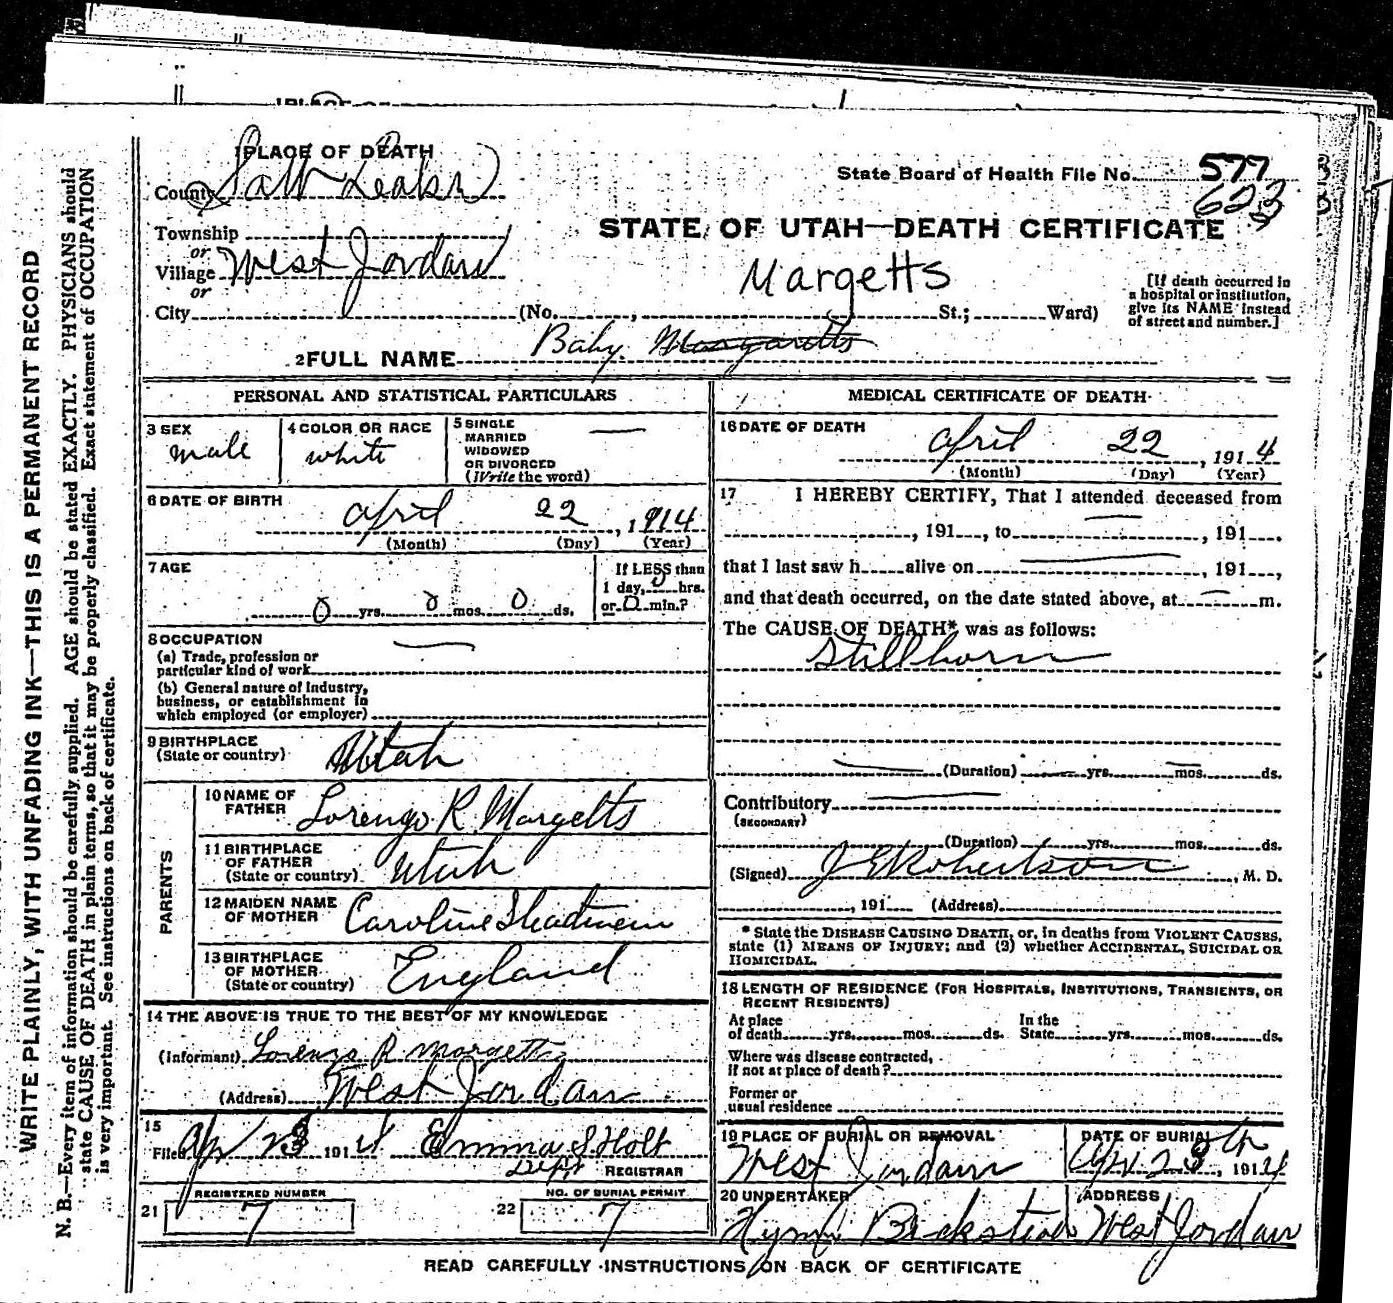 1 PLACE OF DEATH
County Salt Lake
State Board of Health File No. 577
623
Township
or
Village West Jordan
or
City (No. , St.; Ward)
STATE OF UTAH—DEATH CERTIFICATE
Margetts
[If death occurred in
a hospital or institution,
give its NAME instead
of street and number.]
2 FULL NAME Baby Margaretts
PERSONAL AND STATISTICAL PARTICULARS
3 SEX
male
4 COLOR OR RACE
white
5 SINGLE
MARRIED
WIDOWED
OR DIVORCED
(Write the word)
6 DATE OF BIRTH
April 22, 1914
(Month) (Day) (Year)
7 AGE
0 yrs. 0 mos. 0 ds.
If LESS than
1 day, 0 hrs.
or 0 min.?
8 OCCUPATION
(a) Trade, profession or
particular kind of work
(b) General nature of industry,
business, or establishment in
which employed (or employer)
9 BIRTHPLACE
(State or country) Utah
PARENTS
10 NAME OF
FATHER Lorenzo R Margetts
11 BIRTHPLACE
OF FATHER
(State or country) Utah
12 MAIDEN NAME
OF MOTHER Caroline
13 BIRTHPLACE
OF MOTHER
(State or country) England
14 THE ABOVE IS TRUE TO THE BEST OF MY KNOWLEDGE
(Informant) Lorenzo R Margetts
(Address) West Jordan
15
Filed Apr 23 1914 Emma S Holt
Dept REGISTRAR
REGISTERED NUMBER
21 7
NO. OF BURIAL PERMIT
22 7
MEDICAL CERTIFICATE OF DEATH
16 DATE OF DEATH
April 22, 1914
(Month) (Day) (Year)
17 I HEREBY CERTIFY, That I attended deceased from
, 191 , to , 191 .
that I last saw h alive on , 191 ,
and that death occurred, on the date stated above, at m.
The CAUSE OF DEATH* was as follows:
Stillborn
(Duration) yrs. mos. ds.
Contributory
(SECONDARY)
(Duration) yrs. mos. ds.
(Signed) J E Robertson, M. D.
, 191 (Address)
* State the DISEASE CAUSING DEATH, or, in deaths from VIOLENT CAUSES,
state (1) MEANS OF INJURY; and (2) whether ACCIDENTAL, SUICIDAL OR
HOMICIDAL.
18 LENGTH OF RESIDENCE (FOR HOSPITALS, INSTITUTIONS, TRANSIENTS, OR
RECENT RESIDENTS)
At place
of death yrs. mos. ds.
In the
State yrs. mos. ds.
Where was disease contracted,
if not at place of death?
Former or
usual residence
19 PLACE OF BURIAL OR REMOVAL
West Jordan
DATE OF BURIAL
Apr 23, 1914
20 UNDERTAKER
Beckstead
ADDRESS
West Jordan
READ CAREFULLY INSTRUCTIONS ON BACK OF CERTIFICATE
WRITE PLAINLY, WITH UNFADING INK—THIS IS A PERMANENT RECORD
N. B.—Every item of information should be carefully supplied. AGE should be stated EXACTLY. PHYSICIANS should
state CAUSE OF DEATH in plain terms, so that it may be properly classified. Exact statement of OCCUPATION
is very important. See instructions on back of certificate.